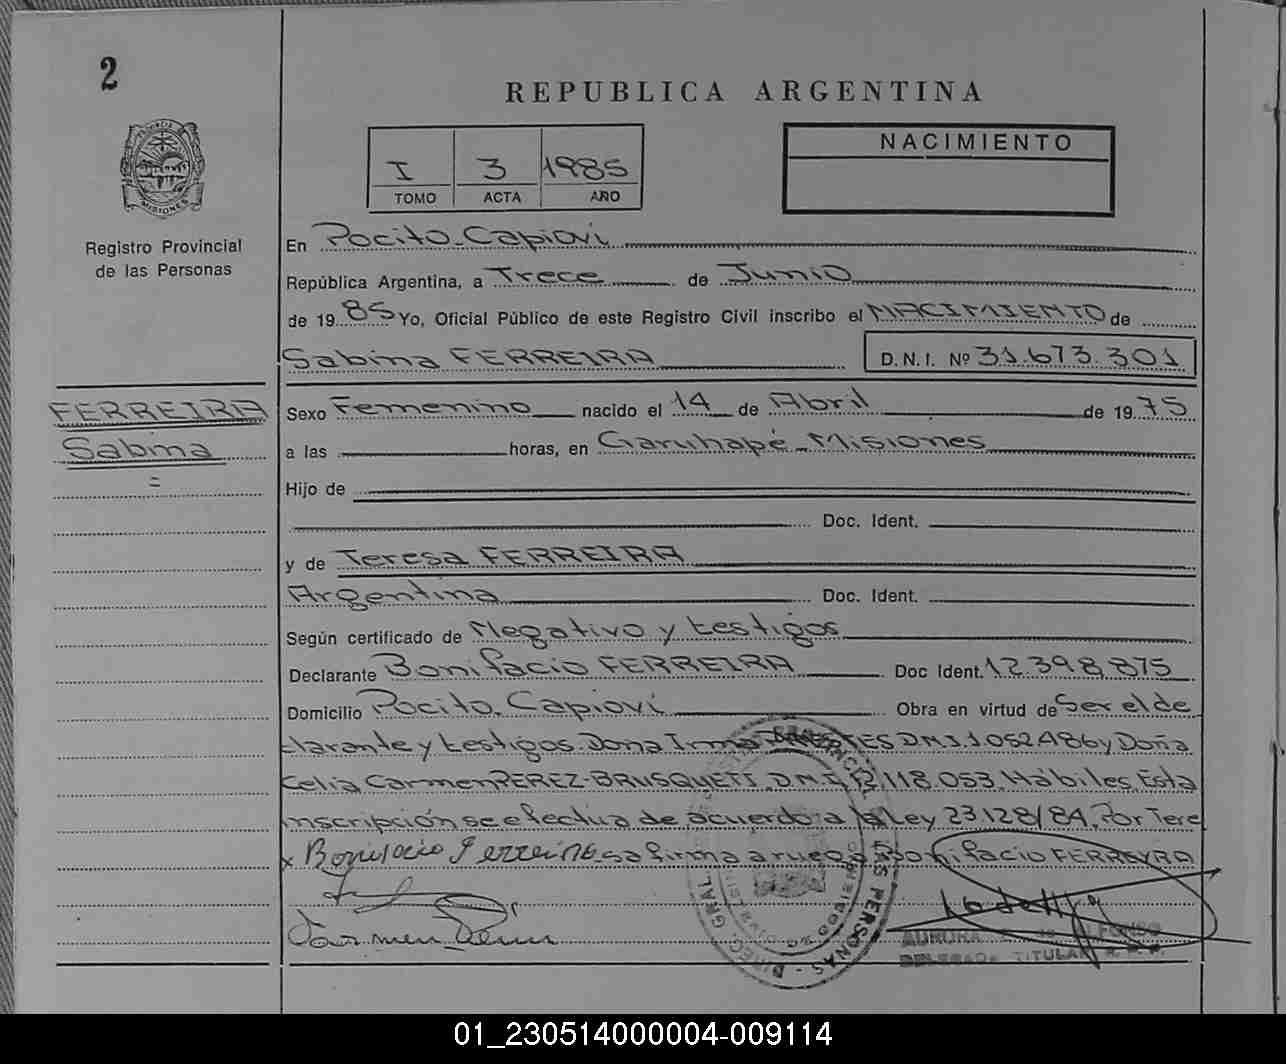 2
REPUBLICA ARGENTINA
NACIMIENTO
I 3 1985
TOMO ACTA AÑO
PROVINCIA DE MISIONES
Registro Provincial
de las Personas
En Pocito-Capiovi
República Argentina, a Trece de Junio
de 1985 Yo, Oficial Público de este Registro Civil inscribo el NACIMIENTO de
Sabina FERREIRA D. N. I. Nº 31.673.301
FERREIRA
Sabina
=
Sexo Femenino nacido el 14 de Abril de 1975
a las horas, en Garuhapé-Misiones
Hijo de
Doc. Ident.
y de Teresa FERREIRA
Argentina Doc. Ident.
Según certificado de Negativo y testigos
Declarante Bonifacio FERREIRA Doc Ident. 12.398.875
Domicilio Pocito-Capiovi Obra en virtud de Ser el de
clarante y testigos. Doña Irma D.N.I. y Doña
Celia Carmen PEREZ-BRUSQUETI. D.N.I. 118.053. Hábiles. Esta
inscripción se efectua de acuerdo a la Ley 23.128/84. Por Tere
x Bonifacio Ferreira sa firma a ruego Bonifacio FERREYRA
Carmen
DIREC. GRAL. PERSONAS
AURORA ALFONSO
DELEGADA TITULAR
01_230514000004-009114